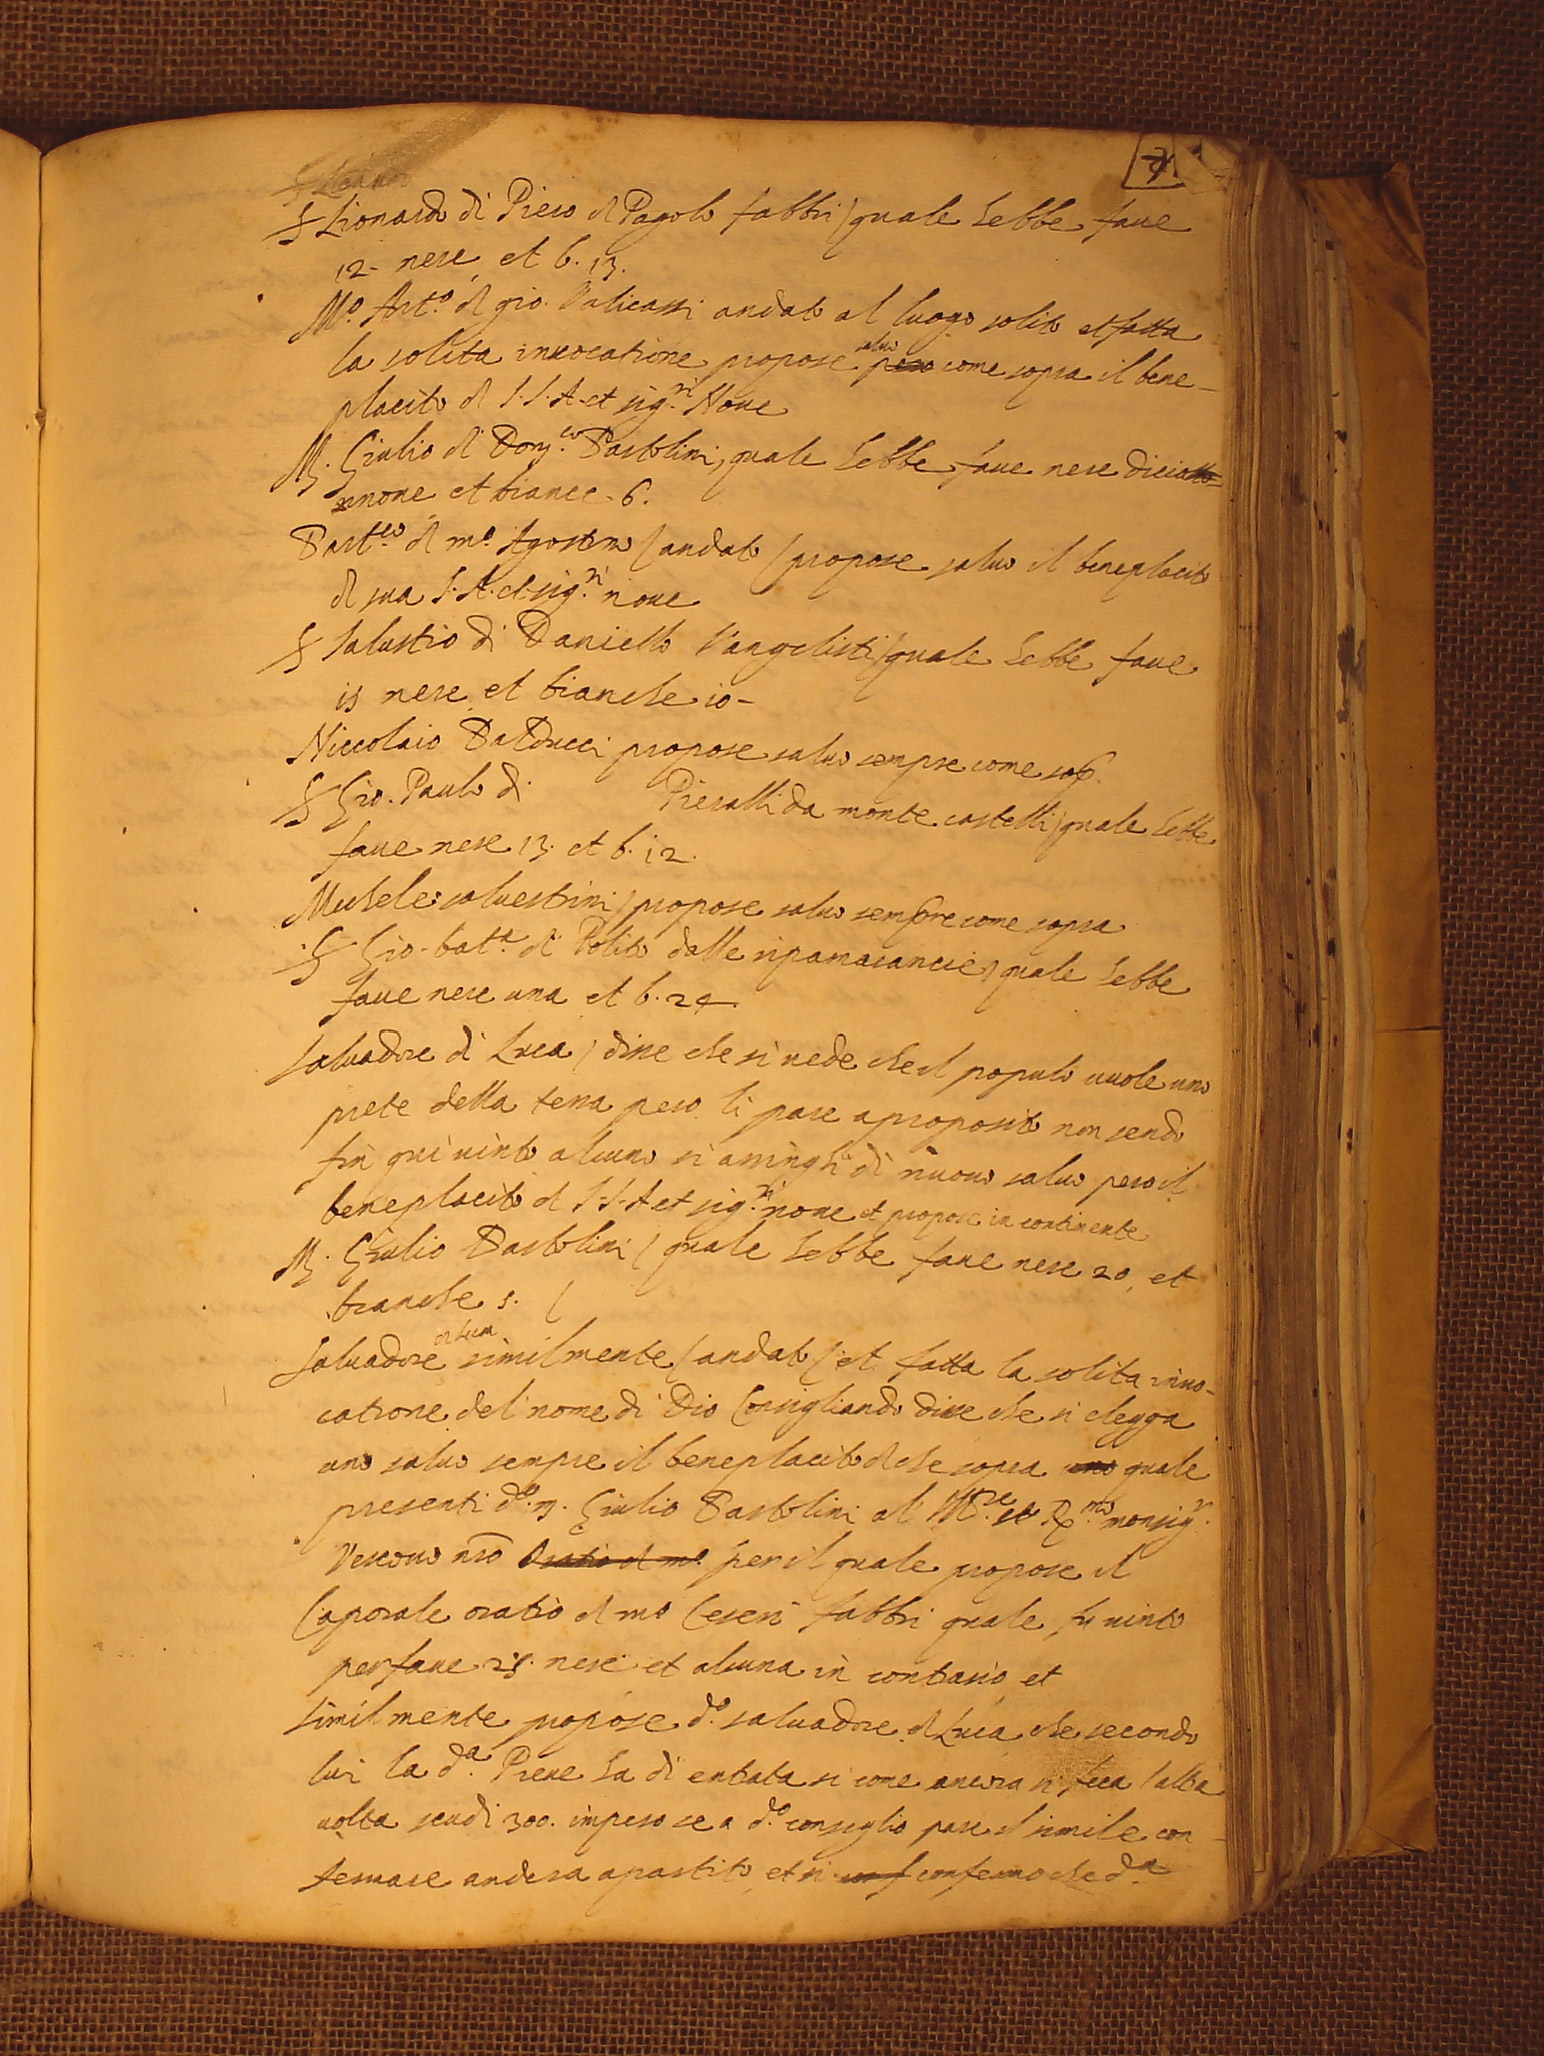 7
S Lionardo
S Lionardo di Piero di Pagolo fabbri / quale hebbe faue
12 - nere et b. 13.
Mº Artº di gio. Valicassi andato al luogo solito et fatta
la solita inuocatione propose salvo pero come sopra il bene-
placito di S.S.A. et sig.ri Noue
M. Giulio di Dom.co Bartolini, quale hebbe faue nere diciotto=
nnoue et biance - 6.
Bart.eo di mº Agostino / andato / propose saluo il beneplacito
di sua S.A. et sig.ri noue
S Salustio di Daniello Vangelisti / quale hebbe faue
15 nere et bianche 10 -
Niccolaio Balducci propose saluo sempre come sop.
S Gio. Paulo di Pieralli da monte castelli / quale hebbe
faue nere 13. et b. 12.
Michele saluestrini / propose saluo sempre come sopra
S Gio. batt.a di Polito dalle ripamarancie / quale hebbe
faue nere una et b. 24.
saluadore di Luca / disse che si uede che il populo uuole uno
prete della terra pero li pare a proposito non sendo
fin qui uinto alcuno si di nuouo saluo pero il
beneplacito di S.S.A et sig.ri noue et propose in continente
M. Giulio Bartolini / quale hebbe faue nere 20, et
bianche 5. /
saluadore di Luca similmente / andato / et fatta la solita inuo-
catione del nome di Dio Consigliando disse che si elegga
uno saluo sempre il beneplacito di che sopra uno quale
presenti dº. m. Giulio Bartolini al M.re et R.mo monsig.r
Vescouo nro Oratio di mº. per il quale propose il
Caporale oratio di mº Ceseri fabbri quale fu uinto
per faue 25. nere et alcuna in contrario et
similmente propose dº. saluadore di Luca che secondo
lui la d.a Pieue ha di entrata si come ancora si fece l'altra
uolta scudi 300. impero se a dº. consiglio pare il simile con-
fermare andera a partito et si conf confermo che d.a